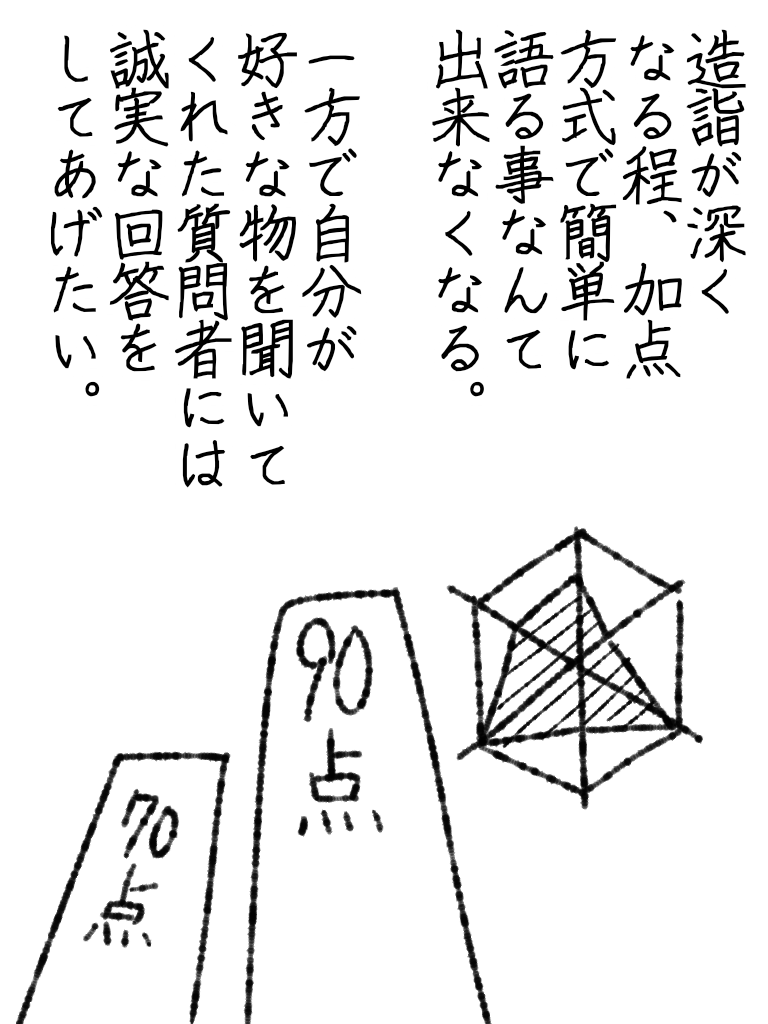 造詣が深く
なる程、加点
方式で簡単に
語る事なんて
出来なくなる。
一方で自分が
好きな物を聞いて
くれた質問者には
誠実な回答を
してあげたい。
90点
70点